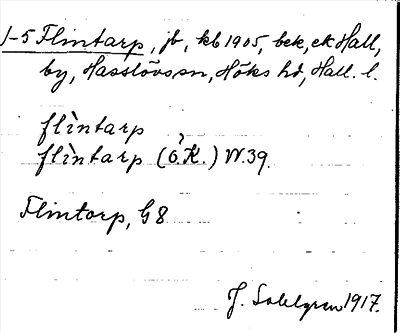 1-5 Flintarp, jb, kb 1905, bek, ek Hall,
by, Hasslövs sn, Höks hd, Hall. l.
flìntarp
flìntarp (ö.K.) W.39.
Flintorp, G8
J. Sahlgren 1917.